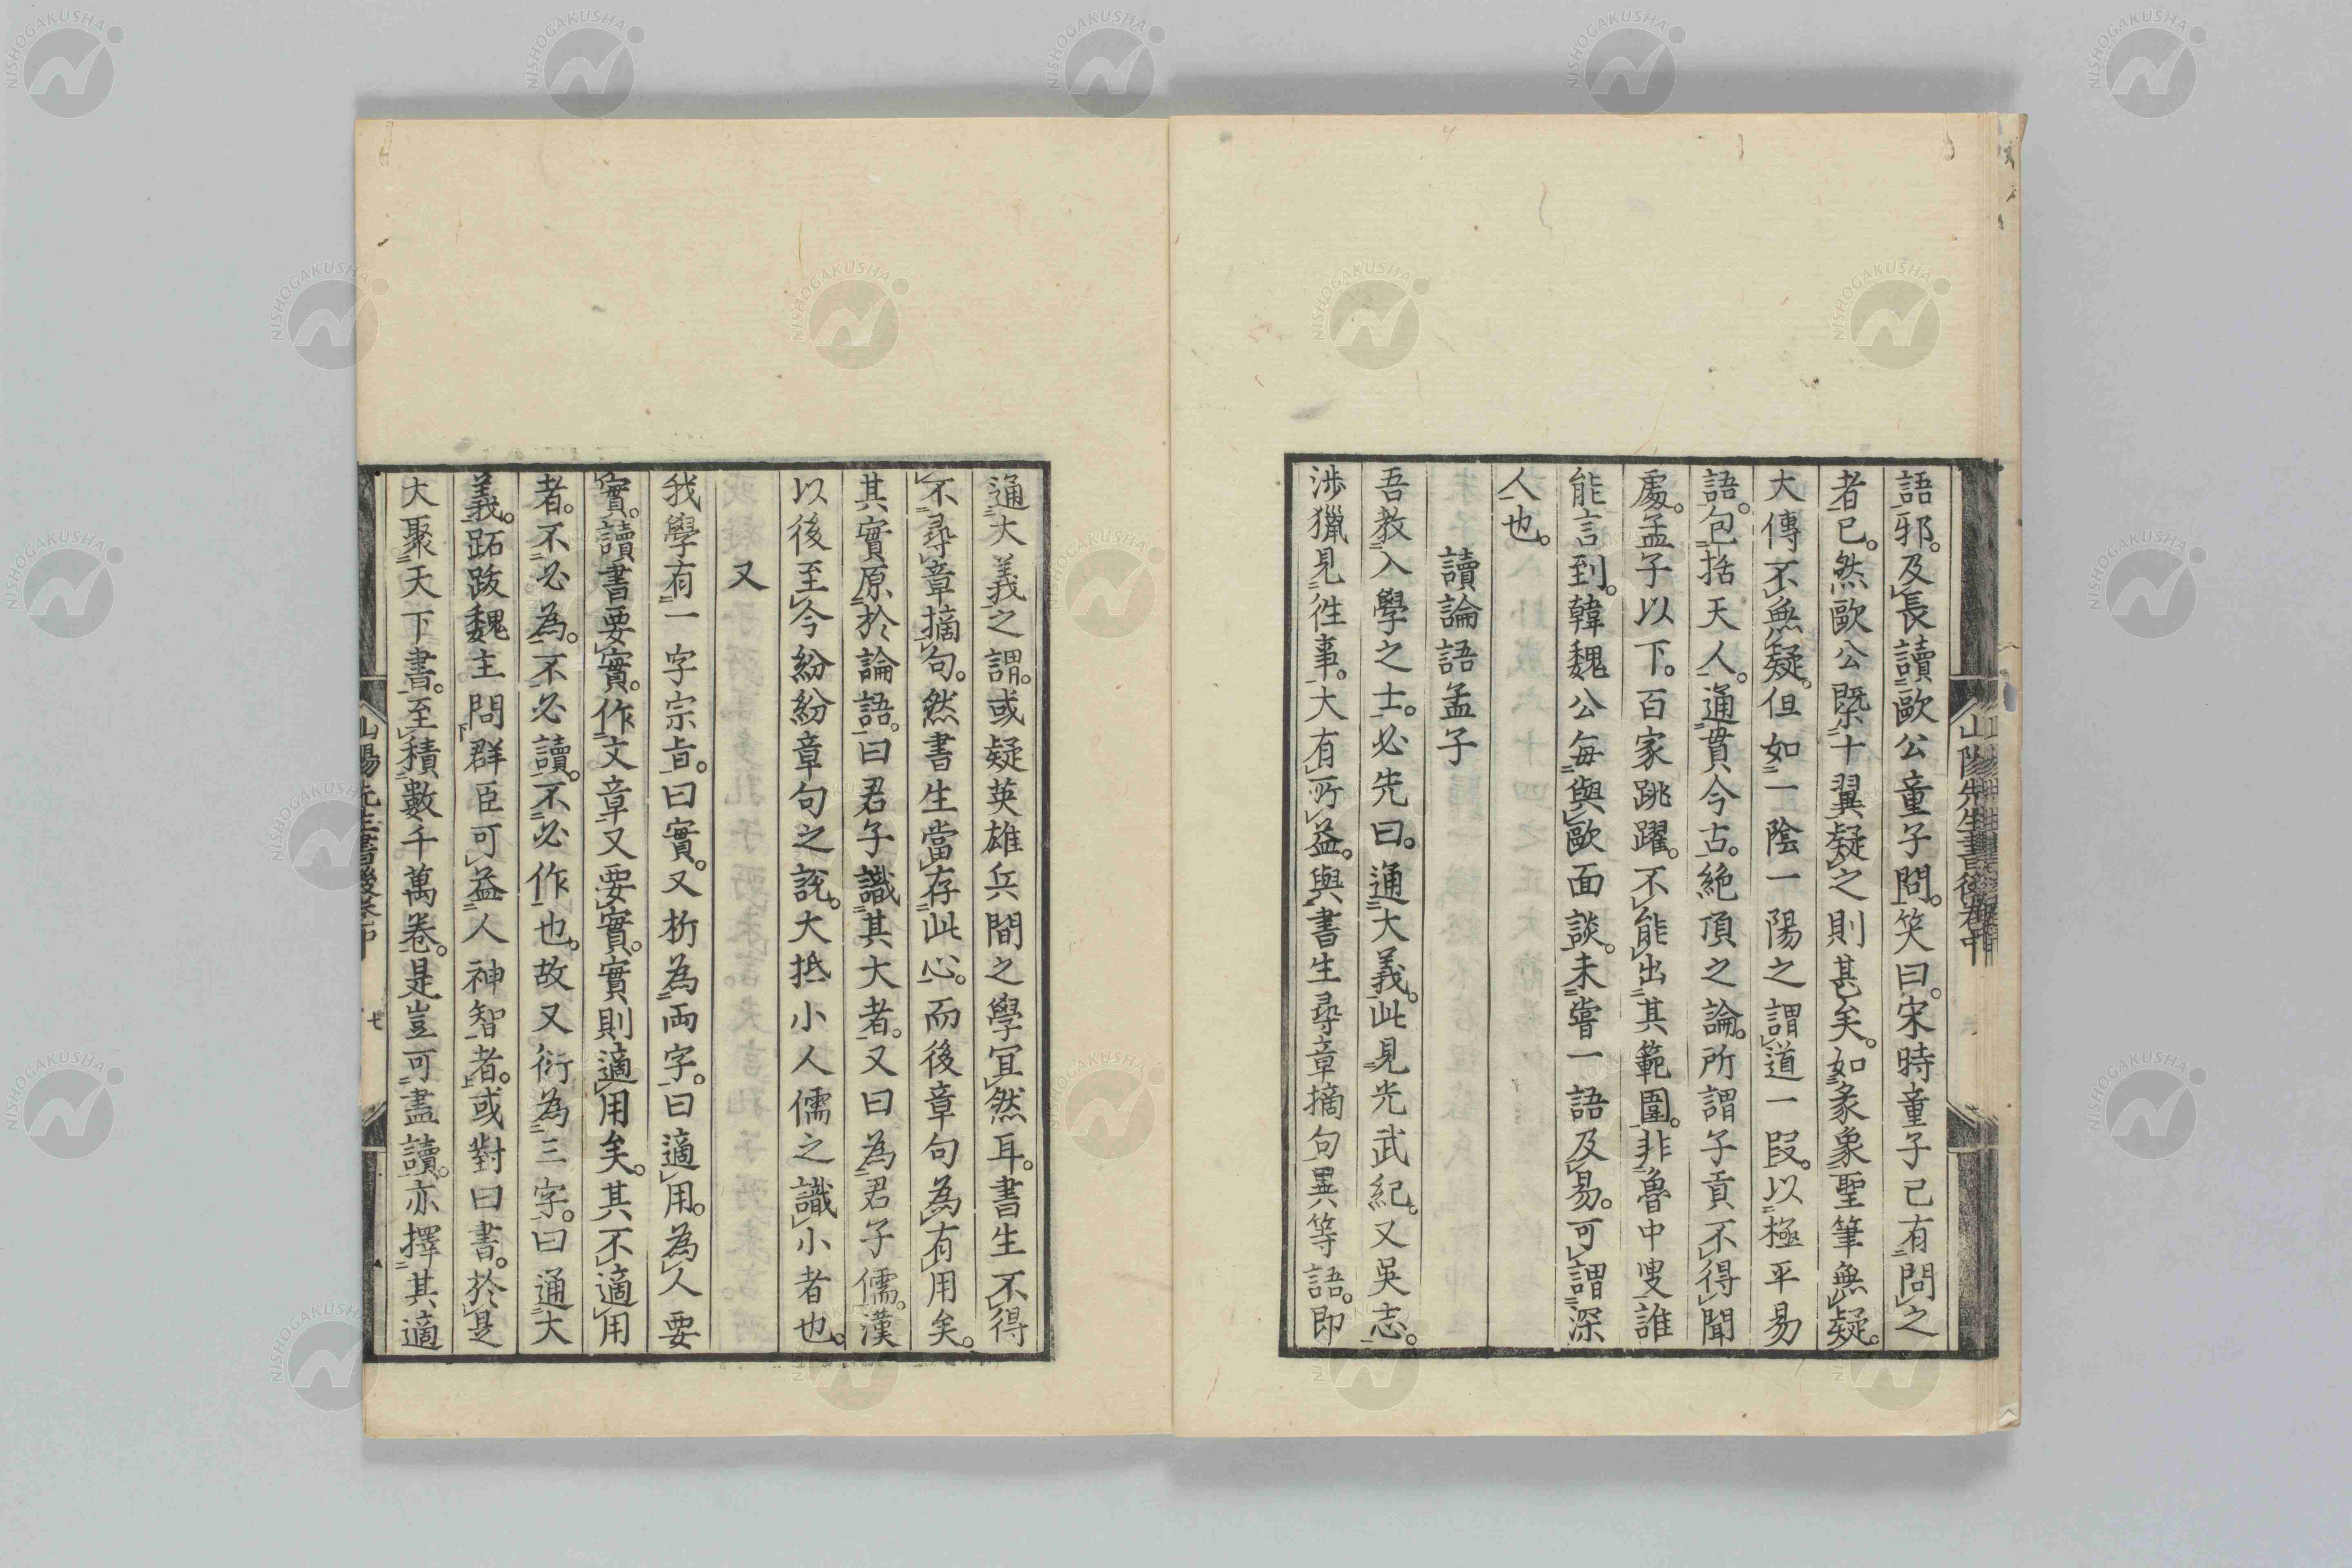 語邪。及長讀歐公童子問。笑曰。宋時童子已有問之
者已。然歐公既十翼疑之則甚矣。如彖象聖筆無疑。
大傳不無疑。但如一陰一陽之謂道一段。以極平易
語。包括天人。通貫今古。絶頂之論。所謂子貢不得聞
處。孟子以下。百家跳躍。不能出其範圍。非魯中叟誰
能言到。韓魏公每與歐面談。未嘗一語及易。可謂深
人也。
讀論語孟子
吾教入學之士。必先曰。通大義。此見光武紀。又吳志。
涉獵見徃事。大有所益。與書生尋章摘句異等語。即
通大義之謂。或疑英雄兵間之學宜然耳。書生不得
不尋章摘句。然書生當存此心。而後章句為有用矣。
其實原於論語。曰君子識其大者。又曰為君子儒。漢
以後至今紛紛章句之說。大抵小人儒之識小者也。
又
我學有一字宗旨。曰實。又析為両字。曰適用。為人要
實。讀書要實。作文章又要實。實則適用矣。其不適用
者。不必為。不必讀。不必作也。故又衍為三字。曰通大
義。跖跋魏主問群臣可益人神智者。或對曰書。於是
大聚天下書。至積數千萬卷。是豈可盡讀。亦擇其適
山陽先生書後卷中 七